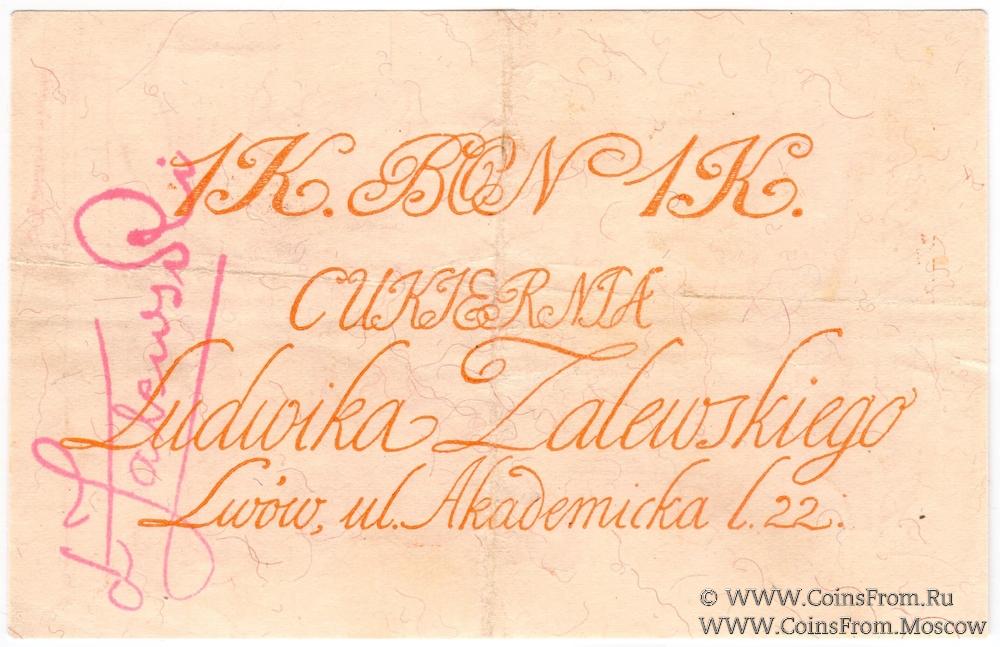 1K. BON 1K.
CUKIERNIA
Ludwika Zalewskiego
Lwów, ul. Akademicka l. 22.
L Zalewski
© WWW.CoinsFrom.Ru
WWW.CoinsFrom.Moscow